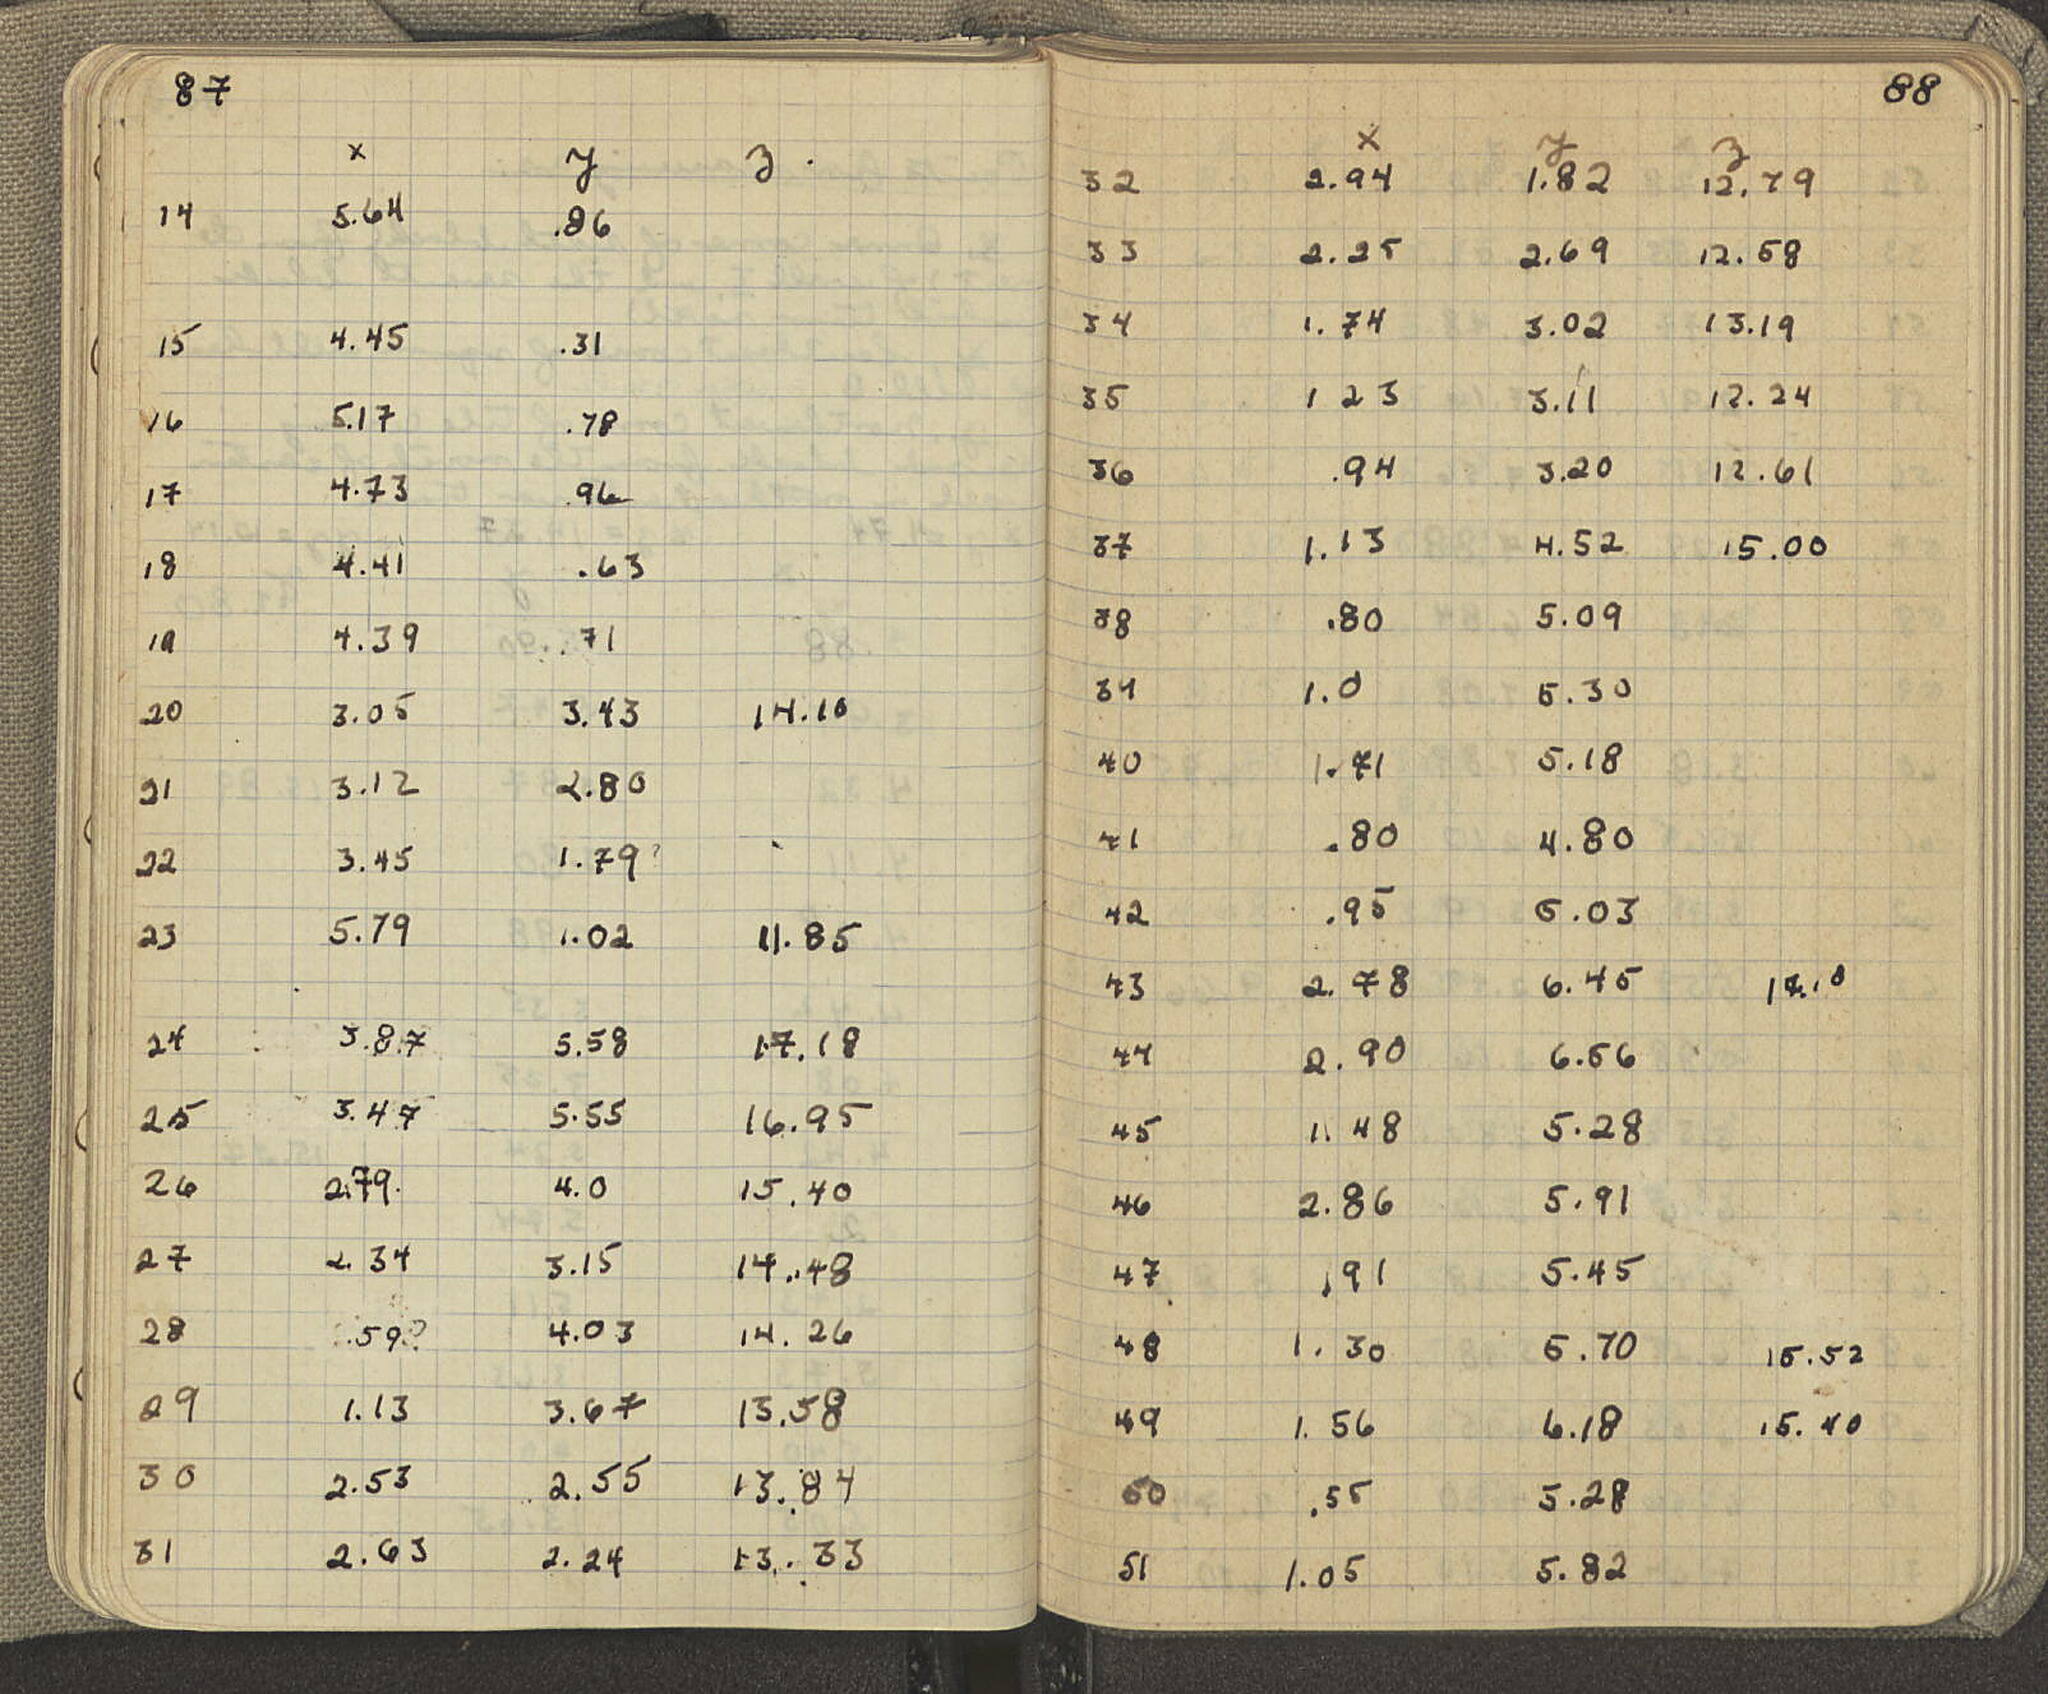 87
x y z
14 5.64 .86
15 4.45 .31
16 5.17 .78
17 4.73 .96
18 4.41 .63
19 4.39 .71
20 3.05 3.43 14.10
21 3.12 2.80
22 3.45 1.79?
23 5.79 1.02 11.85
24 3.87 5.58 17.18
25 3.47 5.55 16.95
26 2.79 4.0 15.40
27 2.34 3.15 14.48
28 .59? 4.03 14.26
29 1.13 3.67 13.58
30 2.53 2.55 13.84
31 2.63 2.24 13.33
88
x y z
32 2.94 1.82 12.79
33 2.25 2.69 12.58
34 1.74 3.02 13.19
35 1 23 3.11 12.24
36 .94 3.20 12.61
37 1.13 4.52 15.00
38 .80 5.09
39 1.0 5.30
40 1.71 5.18
41 .80 4.80
42 .95 5.03
43 2.78 6.45
44 2.90 6.56
45 1.48 5.28
46 2.86 5.91
47 .91 5.45
48 1.30 5.70 15.52
49 1.56 6.18 15.40
50 .55 5.28
51 1.05 5.82